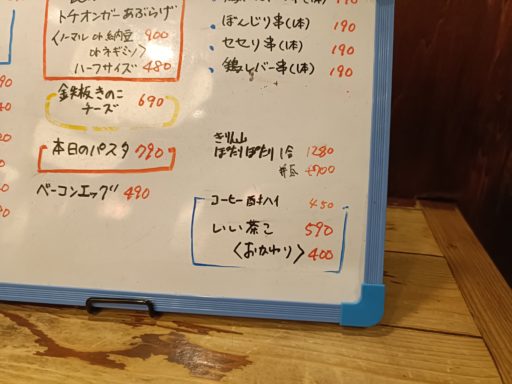 トケオンガーあぶらげ
〈ノーマル or 納豆 900
or ネギミソ〉
ハーフサイズ 480
鉄板きのこ
チーズ 690
本日のパスタ 790
ベーコンエッグ 490
ぼんじり串(1本) 190
セセリ串(1本) 190
鶏レバー串(1本) 190
きりん山
ぽたりぽたり 1合 1280
コーヒー酎ハイ 450
いい茶こ 590
〈おかわり〉 400